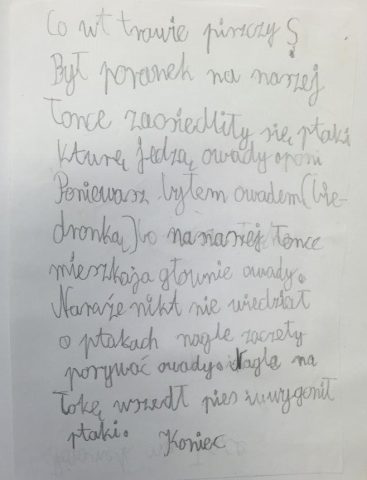 Co wt trawie pirzczy ?
Był poranek na naszej
łonce zaosiedliły się ptaki
kturę jedzą owady
Poniewasz byłem owadem (bie-
dronką) bo na naszej łonce
mieszkaja głownie owady.
Naraże nikt nie wiedział
o ptakach nagle zaczęły
porywać owady. nagle na
łokę wszedł pies i wygonił
ptaki. Koniec